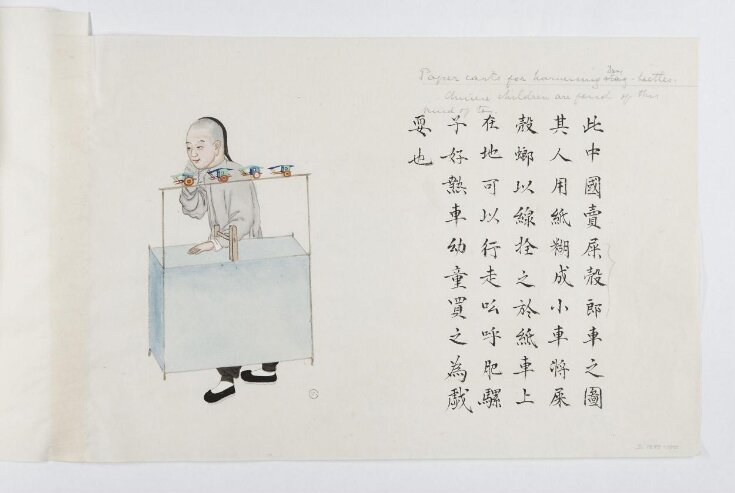 Paper carts for harnessing
Chinese children are fond of this
kind of toy
此中國賣屎殼郎車之圖
其人用紙糊成小車將屎
殼螂以線拴之於紙車上
在地可以行走吆呼肥騾
子好熱車幼童買之為戲
耍也